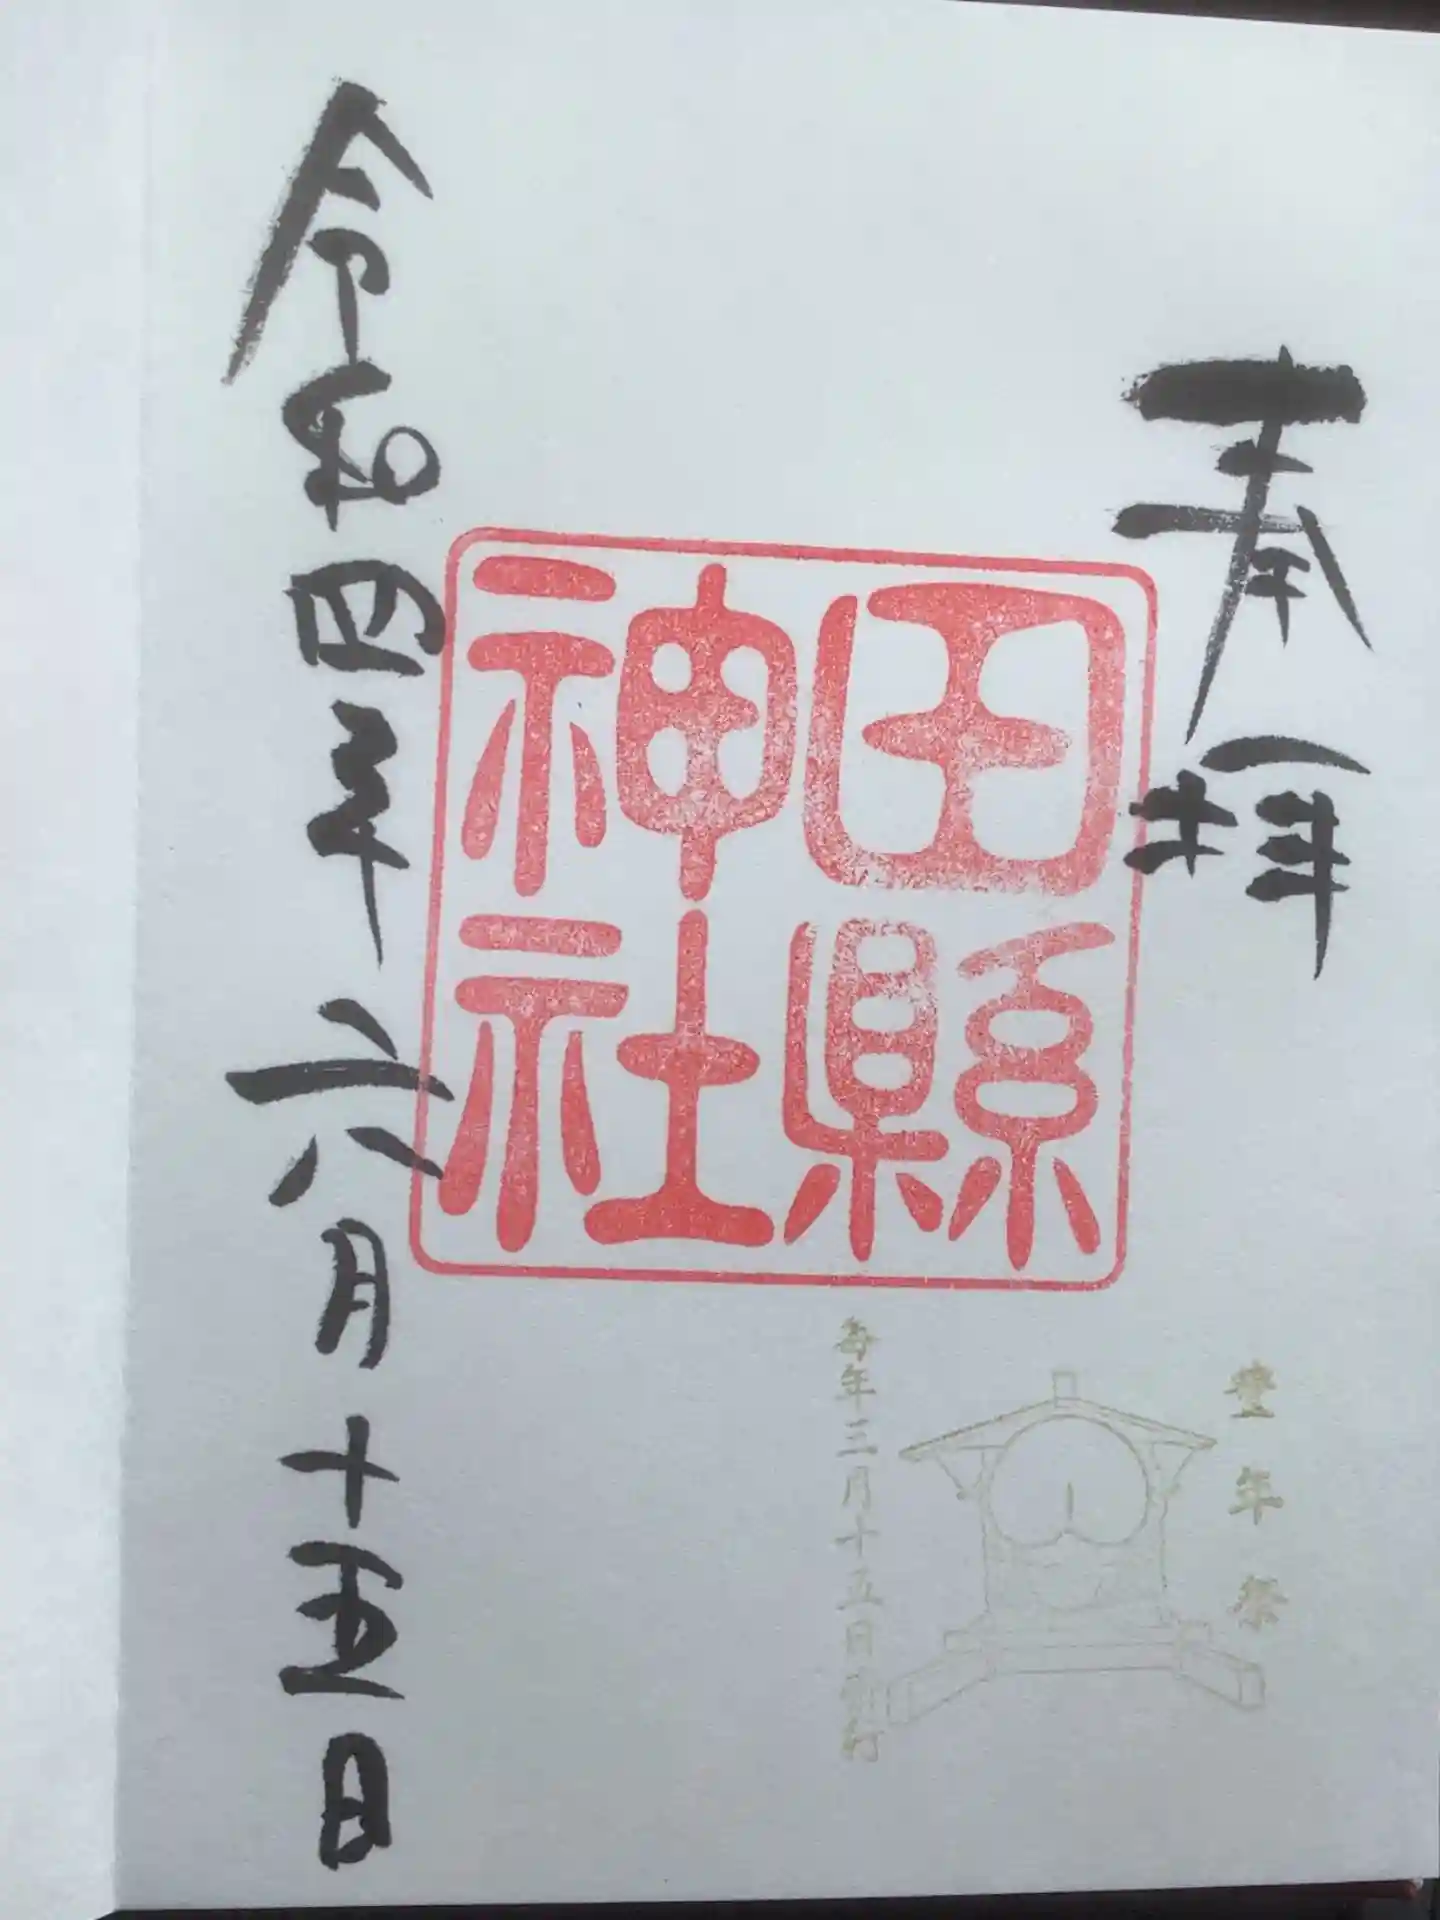 奉拝
田縣
神社
豊年祭
毎年三月十五日斎行
令和四年六月十五日